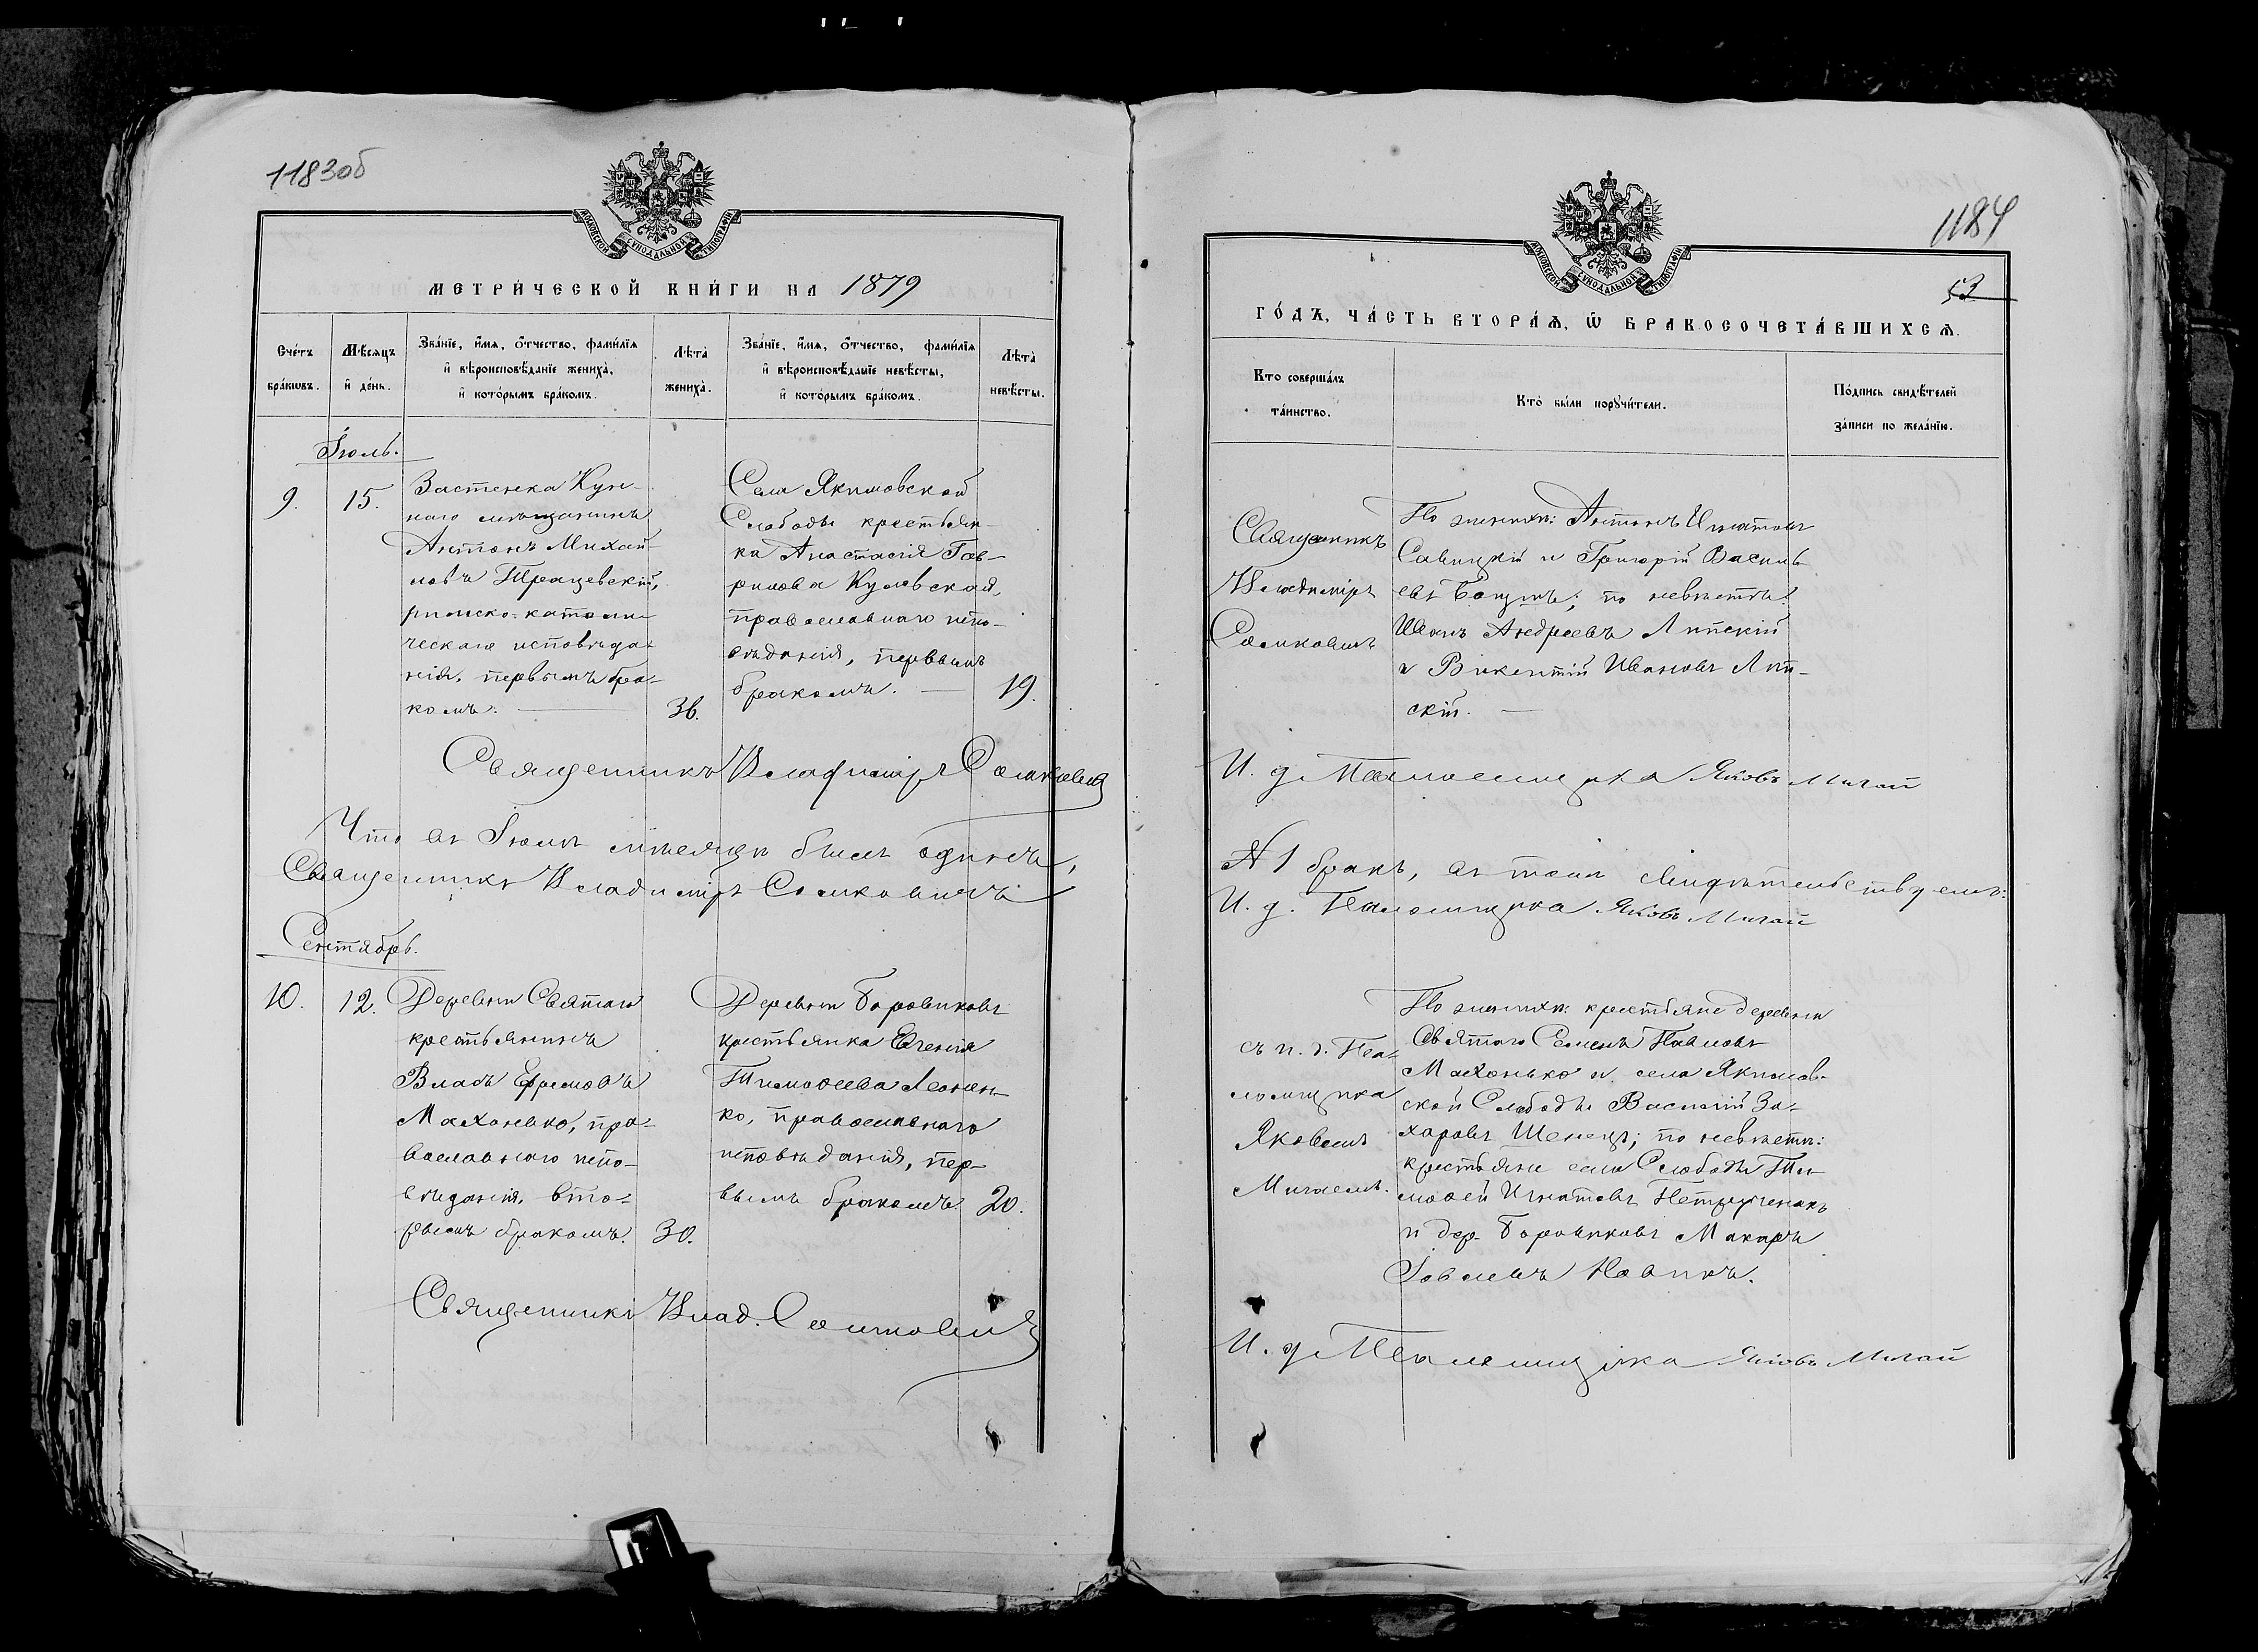 1183об
МОСКОВСКОЙ СУНОДАЛЬНОЙ ТИПОГРАФІИ
МЕТРИ́ЧЕСКОЙ КНИ́ГИ НА 1879
Сче́тъ бра́кωвъ.
Мѣ́сяцъ и де́нь.
Зва́ніе, и́мя, о́тчество, фами́лія
и вѣроисповѣ́даніе жениха̀,
и кото́рымъ бра́комъ.
Лѣ́та̀ жениха̀.
Зва́ніе, и́мя, о́тчество, фами́лія
и вѣроисповѣ́даніе невѣ́сты,
и кото́рымъ бра́комъ.
Лѣ́та̀ невѣ́сты.
Іюль.
9.
15.
Застенка Кун-
наго мѣщанинъ
Антонъ Михай-
ловъ Трацевскій,
римско-католи-
ческаго исповѣда-
нія, первымъ бра-
комъ.
36.
Села Якимовской
Слободы крестьян-
ка Анастасія Гав-
рилова Кулевская,
православнаго испо-
вѣданія, первымъ
бракомъ.
19.
Священникъ Владиміръ Сомковичъ
Что въ Іюлѣ мѣсяцѣ былъ одинъ,
Священникъ Владиміръ Сомковичъ
Сентябрь.
10.
12.
Деревни Святаго
крестьянинъ
Владъ Ефремовъ
Махонько, пра-
вославнаго испо-
вѣданія, вто-
рымъ бракомъ.
30.
Деревни Боровиковъ
крестьянка Евгенія
Тимоѳеева Леонен-
ко, православнаго
исповѣданія, пер-
вымъ бракомъ.
20.
Священникъ Влад. Сомковичъ
1184
53
МОСКОВСКОЙ СУНОДАЛЬНОЙ ТИПОГРАФІИ
ГО́ДЪ, ЧА́СТЬ ВТОРА́Я, Ѽ БРАКОСОЧЕТА́ВШИХСЯ.
Кто соверша́лъ
та́инство.
Кто̀ бы́ли поручи́тели.
По́дпись свидѣ́телей
за́писи по жела́нію.
Священникъ
Владиміръ
Сомковичъ
По женихѣ: Антонъ Игнатовъ
Савицкій и Григорій Василь-
евъ Боцулъ; по невѣстѣ:
Иванъ Андреевъ Липскій
и Викентій Ивановъ Лип-
скій.
И. д. Псаломщика Яковъ Мигай
№ 1 бракъ, въ томъ свидѣтельствуемъ:
И. д. Псаломщика Яковъ Мигай
съ и. д. Пса-
ломщика
Яковомъ
Мигаемъ.
По женихѣ: крестьяне деревни
Святаго Семенъ Павловъ
Махонько и села Якимов-
ской Слободы Василій За-
харовъ Шенецъ; по невѣстѣ:
крестьяне села Слободы Ти-
моѳей Игнатовъ Петрученокъ
и дер. Боровиковъ Макаръ
Іовлевъ Новикъ.
И. д. Псаломщика Яковъ Мигай